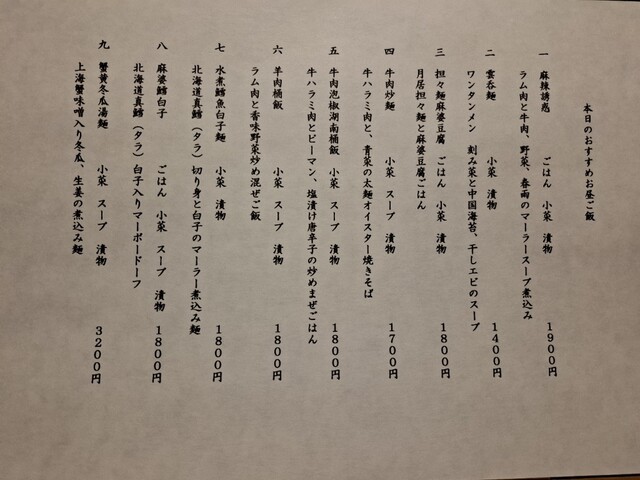 本日のおすすめお昼ご飯
一 麻辣誘惑 ごはん 小菜 漬物 1900円
ラム肉と牛肉、野菜、春雨のマーラースープ煮込み
二 雲呑麺 小菜 漬物 1400円
ワンタンメン 刻み菜と中国海苔、干しエビのスープ
三 担々麺麻婆豆腐 ごはん 小菜 漬物 1800円
月居担々麺と麻婆豆腐ごはん
四 牛肉炒麺 小菜 スープ 漬物 1700円
牛ハラミ肉と、青菜の太麺オイスター焼きそば
五 牛肉泡椒湖南桶飯 小菜 スープ 漬物 1800円
牛ハラミ肉とピーマン、塩漬け唐辛子の炒めまぜごはん
六 羊肉桶飯 小菜 スープ 漬物 1800円
ラム肉と香味野菜炒め混ぜご飯
七 水煮鱈魚白子麺 小菜 漬物 1800円
北海道真鱈（タラ）切り身と白子のマーラー煮込み麺
八 麻婆鱈白子 ごはん 小菜 スープ 漬物 1800円
北海道真鱈（タラ）白子入りマーボードーフ
九 蟹黄冬瓜湯麺 小菜 スープ 漬物 3200円
上海蟹味噌入り冬瓜、生姜の煮込み麺